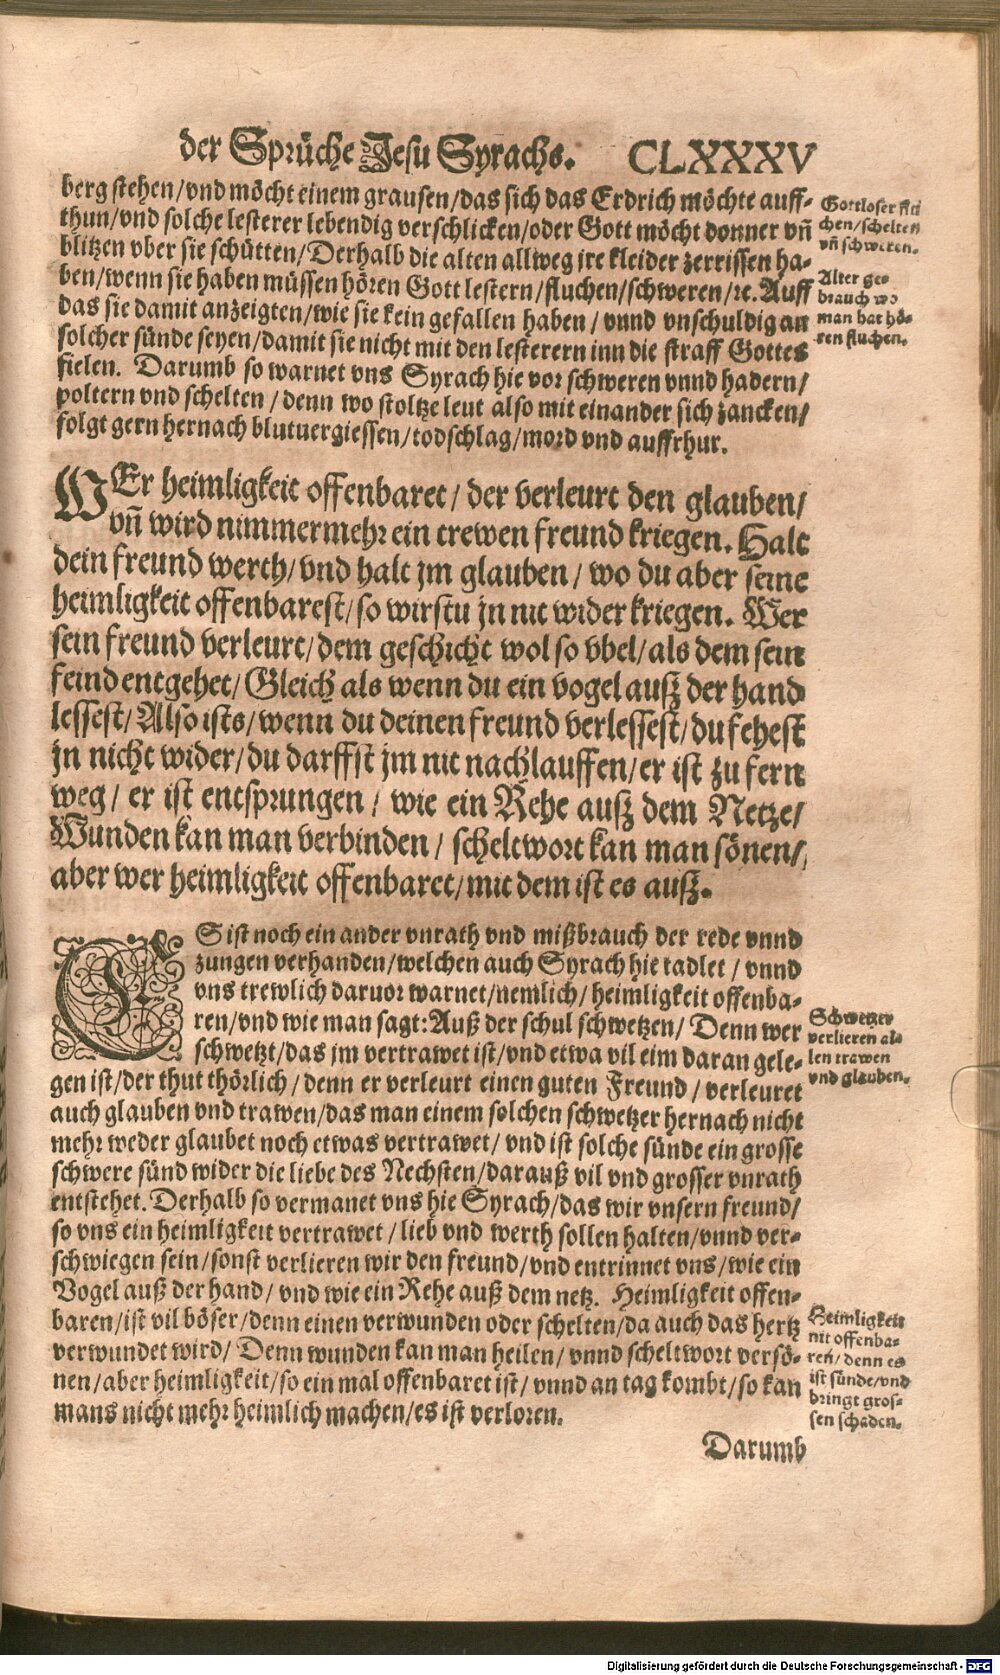 der Sprüche Jesu Syrachs. CLXXXV
berg stehen/vnd möcht einem grausen/das sich das Erdrich möchte auff-
thun/vnd solche lesterer lebendig verschlicken/oder Gott möcht donner vñ
blitzen vber sie schütten/Derhalb die alten allweg jre kleider zerrissen ha-
ben/wenn sie haben müssen hören Gott lestern/fluchen/schweren/rc. Auff
das sie damit anzeigten/wie sie kein gefallen haben/vnnd vnschuldig an
solcher sünde seyen/damit sie nicht mit den lesterern inn die straff Gottes
fielen. Darumb so warnet vns Syrach hie vor schweren vnnd hadern/
poltern vnd schelten/denn wo stoltze leut also mit einander sich zancken/
folgt gern hernach blutuergiessen/todschlag/mord vnd auffrhur.
Gottloser
chen/schelten
vñ schweren.
Alter ge-
brauch wo
man hat hö-
ren fluchen.
WEr heimligkeit offenbaret/der verleurt den glauben/
vñ wird nimmermehr ein trewen freund kriegen. Halt
dein freund werth/vnd halt jm glauben/wo du aber seine
heimligkeit offenbarest/so wirstu jn nit wider kriegen. Wer
sein freund verleurt/dem geschicht wol so vbel/als dem sein
feind entgehet/Gleich als wenn du ein vogel außz der hand
lessest/Also ists/wenn du deinen freund verlessest/du fehest
jn nicht wider/du darffst jm nit nachlauffen/er ist zu fern
weg/er ist entsprungen/wie ein Rehe außz dem Netze/
Wunden kan man verbinden/scheltwort kan man sönen/
aber wer heimligkeit offenbaret/mit dem ist es außz.
ES ist noch ein ander vnrath vnd mißbrauch der rede vnnd
zungen verhanden/welchen auch Syrach hie tadlet/vnnd
vns trewlich daruor warnet/nemlich/heimligkeit offenba-
ren/vnd wie man sagt: Auß der schul schwetzen/Denn wer
schwetzt/das jm vertrawet ist/vnd etwa vil eim daran gele-
gen ist/der thut thörlich/denn er verleurt einen guten Freund/verleuret
auch glauben vnd trawen/das man einem solchen schwetzer hernach nicht
mehr weder glaubet noch etwas vertrawet/vnd ist solche sünde ein grosse
schwere sünd wider die liebe des Nechsten/darauß vil vnd grosser vnrath
entstehet. Derhalb so vermanet vns hie Syrach/das wir vnsern freund/
so vns ein heimligkeit vertrawet/lieb vnd werth sollen halten/vnnd ver-
schwiegen sein/sonst verlieren wir den freund/vnd entrinnet vns/wie ein
Vogel auß der hand/vnd wie ein Rehe auß dem netz. Heimligkeit offen-
baren/ist vil böser/denn einen verwunden oder schelten/da auch das hertz
verwundet wird/Denn wunden kan man heilen/vnnd scheltwort versö-
nen/aber heimligkeit/so ein mal offenbaret ist/vnnd an tag kombt/so kan
mans nicht mehr heimlich machen/es ist verloren.
Schwetzer
verlieren al-
len trawen
vnd glauben.
Heimligkeit
nit offenba-
ren/denn es
ist sünde/vnd
bringt gros-
sen schaden.
Darumb
Digitalisierung gefördert durch die Deutsche Forschungsgemeinschaft - DFG